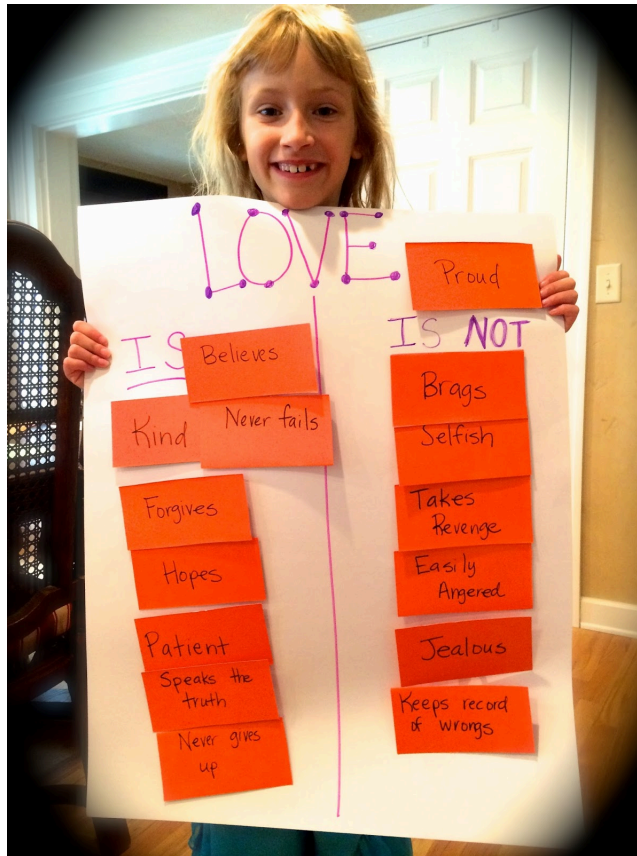 LOVE
IS
Believes
Kind
Never fails
Forgives
Hopes
Patient
Speaks the
truth
Never gives
up
Proud
IS NOT
Brags
Selfish
Takes
Revenge
Easily
Angered
Jealous
Keeps record
of wrongs